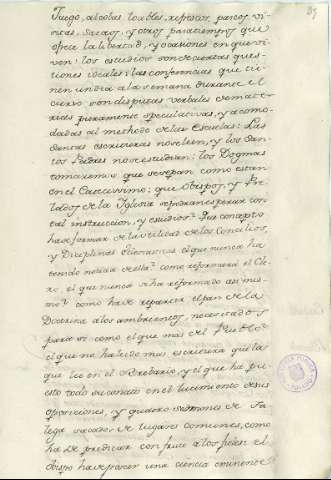 Juego, alcobas, loables, refrescos, paseos, vi-
sitas, saraos, y otros pasatiempos que
ofrece la libertad, y ocasiones en que vi-
ven: los estudios son de ciertas ques-
tiones vocales: las conferencias que tie-
nen un dia a la semana durante el
curso son disputas verbales de mate-
rias puramente especulativas, y acomo-
dadas al methodo de las Escuelas: Las
Santas Escrituras no veleen, y los San-
tos Padres no se estudian: los Dogmas
como que se sepan como estan
en el Catecismo: que Obispos, y Pre-
lados de la Iglesia se podran esperar con
tal instruccion, y estudio? Que concepto
ha de formar de la utilidad de los Concilios,
y Disciplina Eclesiastica el que nunca ha
tenido noticia de ella? como reformará el Cle-
ro, el que nunca se ha reformado asi mis-
mo? como ha de repartir el pan de la
Doctrina a los ambrientos, necesitados y
parvulos como el que mas del Pueblo
el que no ha leido mas escritura que la
que lee en el Brebiario, y el que ha pu-
esto todo su conato en el lucimiento de sus
oposiciones, y quatro sermones de
sacados de lugares comunes, como
ha de predicar con fruto a los fieles el
Obispo ha de poseer una ciencia eminente